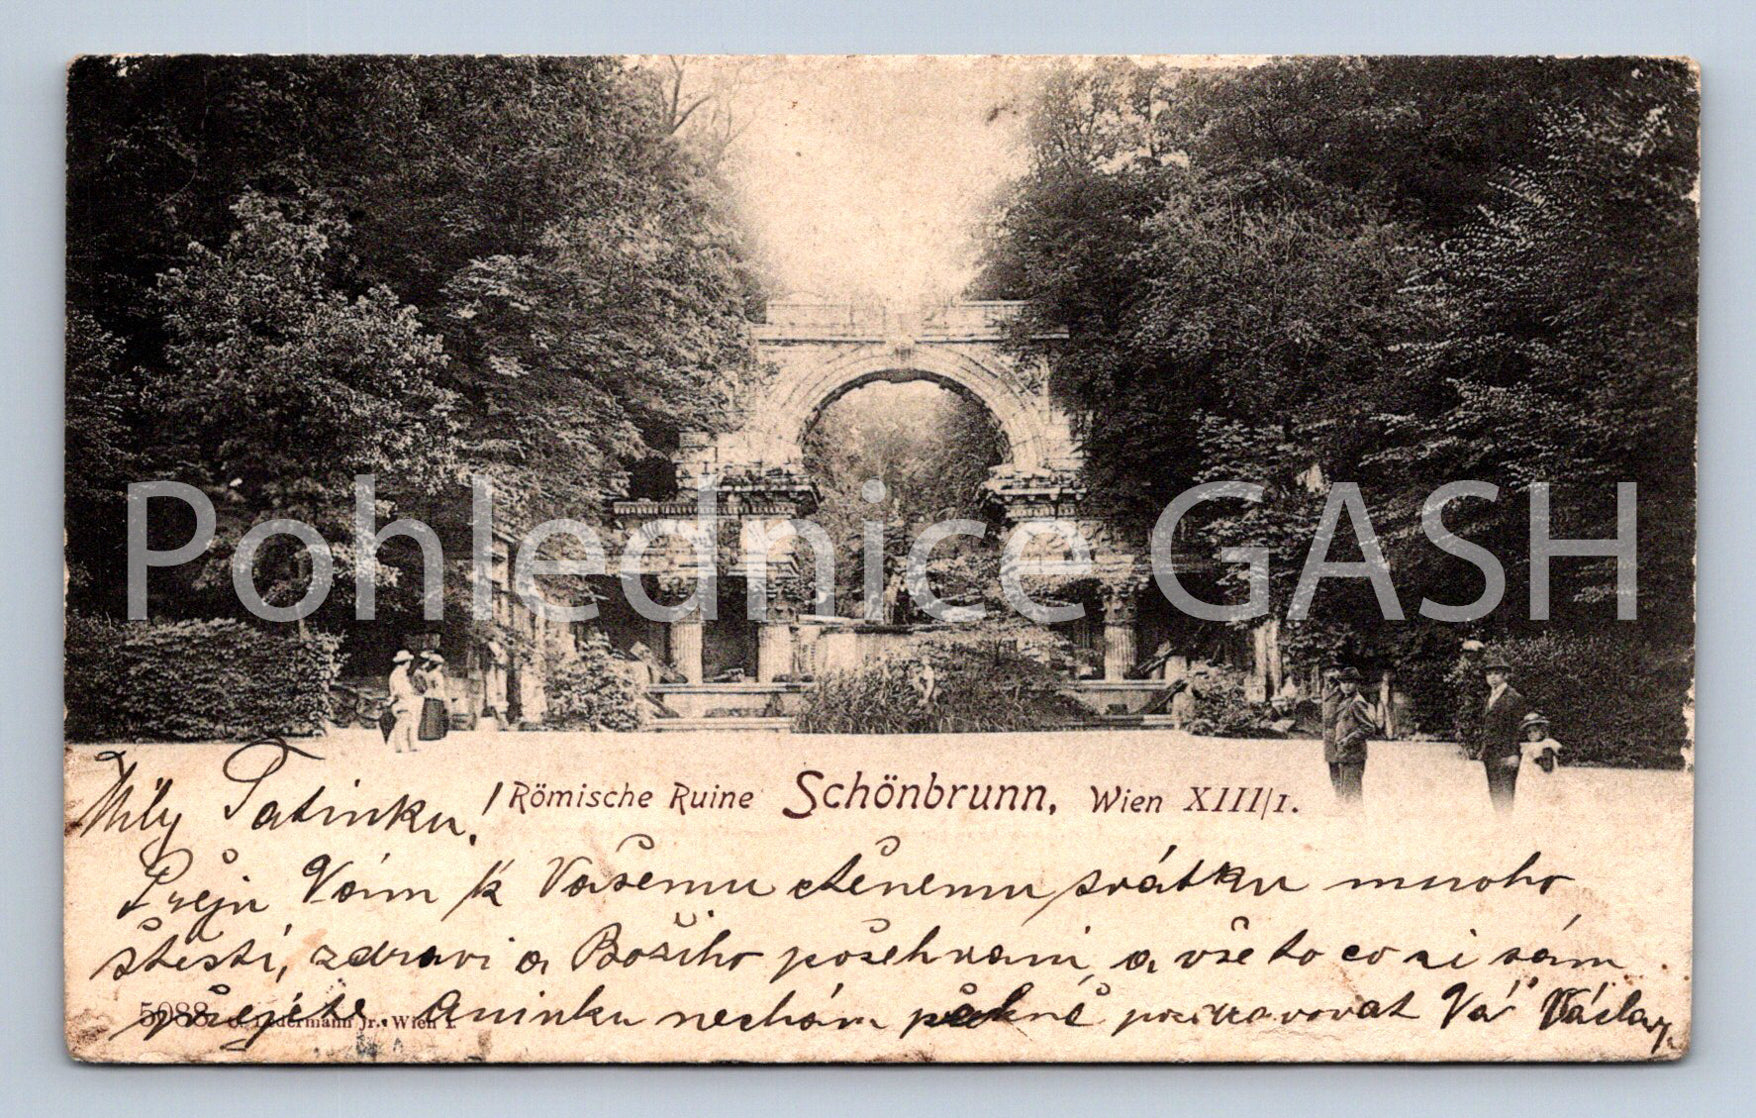 Pohlednice GASH
Römische Ruine Schönbrunn, Wien XIII/1.
Milý Tatínku!
Přeju Vám k Vašemu ctěnemu svátku mnoho
štěstí, zdraví a Božího požehnani, a vše to co si sám
přejéte Aninku nechám pěkně pozdravovat Vá' Václav,
5088 Ledermann jr. Wien I.